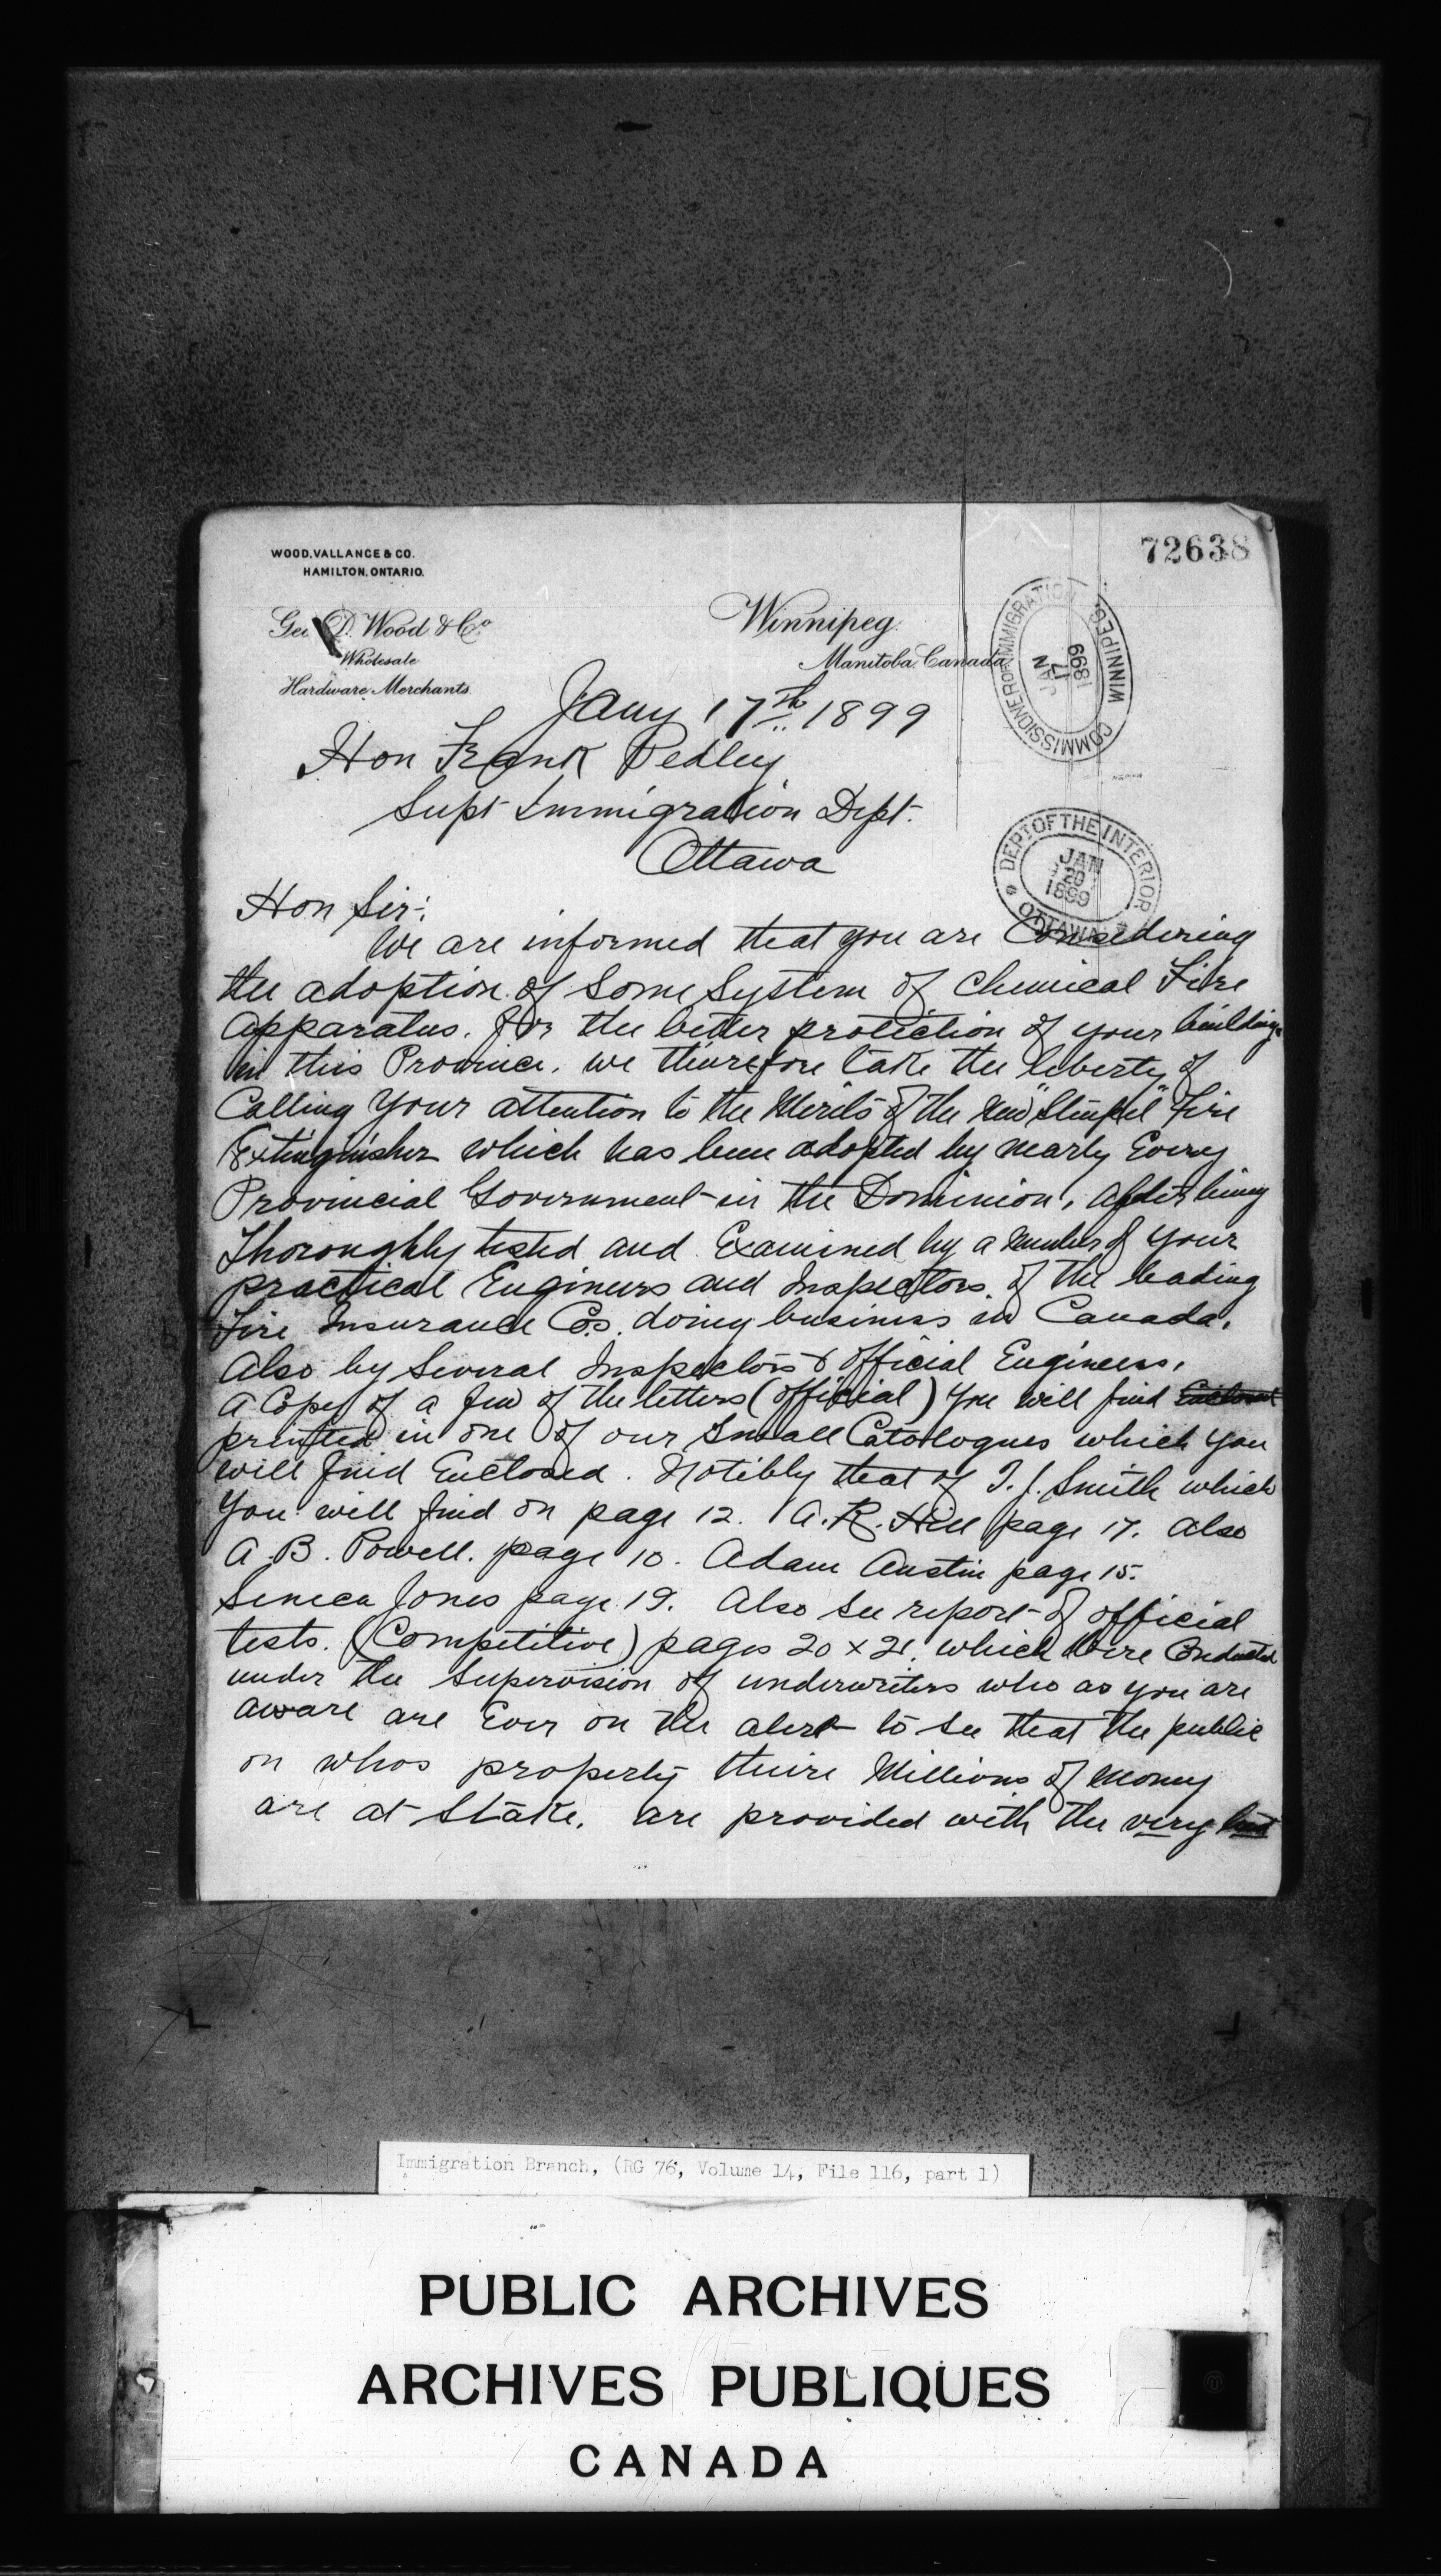 WOOD, VALLANCE & CO.
HAMILTON, ONTARIO.
72638
Geo. D. Wood & Co.
Wholesale
Hardware Merchants.
Winnipeg.
Manitoba. Canada
COMMISSIONER OF IMMIGRATION WINNIPEG.
JAN 17 1899
Jany 17th 1899
Hon Frank Pedley
Supt Immigration Dept.
Ottawa
DEPT OF THE INTERIOR
JAN 20 1899
OTTAWA
Hon Sir:
We are informed that you are Considering
the adoption of Some System of Chemical Fire
Apparatus. for the better protection of your buildings
in this Province. we therefore take the liberty of
Calling Your attention to the Merits of the New Fire
Extinguisher which has been adopted by nearly Every
Provincial Government in the Dominion, after being
Thoroughly tested and Examined by a number of your
practical Engineers and Inspectors. of the leading
Fire Insurance Cos. doing business in Canada.
Also by Several Inspectors & official Engineers.
A Copy of a few of the letters (official) you will find Enclosed
printed in one of our Small Catologues which you
will find Enclosed. Notibly that of T. J. Smith which
You will find on page 12. A. R. Hill page 17. also
A. B. Powell. page 10. Adam Austin page 15.
Seneca Jones page 19. Also see report of official
tests. (Competitive) pages 20 x 21. which were Conducted
under the Supervision of underwriters who as you are
aware are Ever on the alert to see that the public
on whos property theire Millions of Money
are at Stake. are provided with the very best
Immigration Branch, (RG 76, Volume 14, File 116, part 1)
PUBLIC ARCHIVES
ARCHIVES PUBLIQUES
CANADA